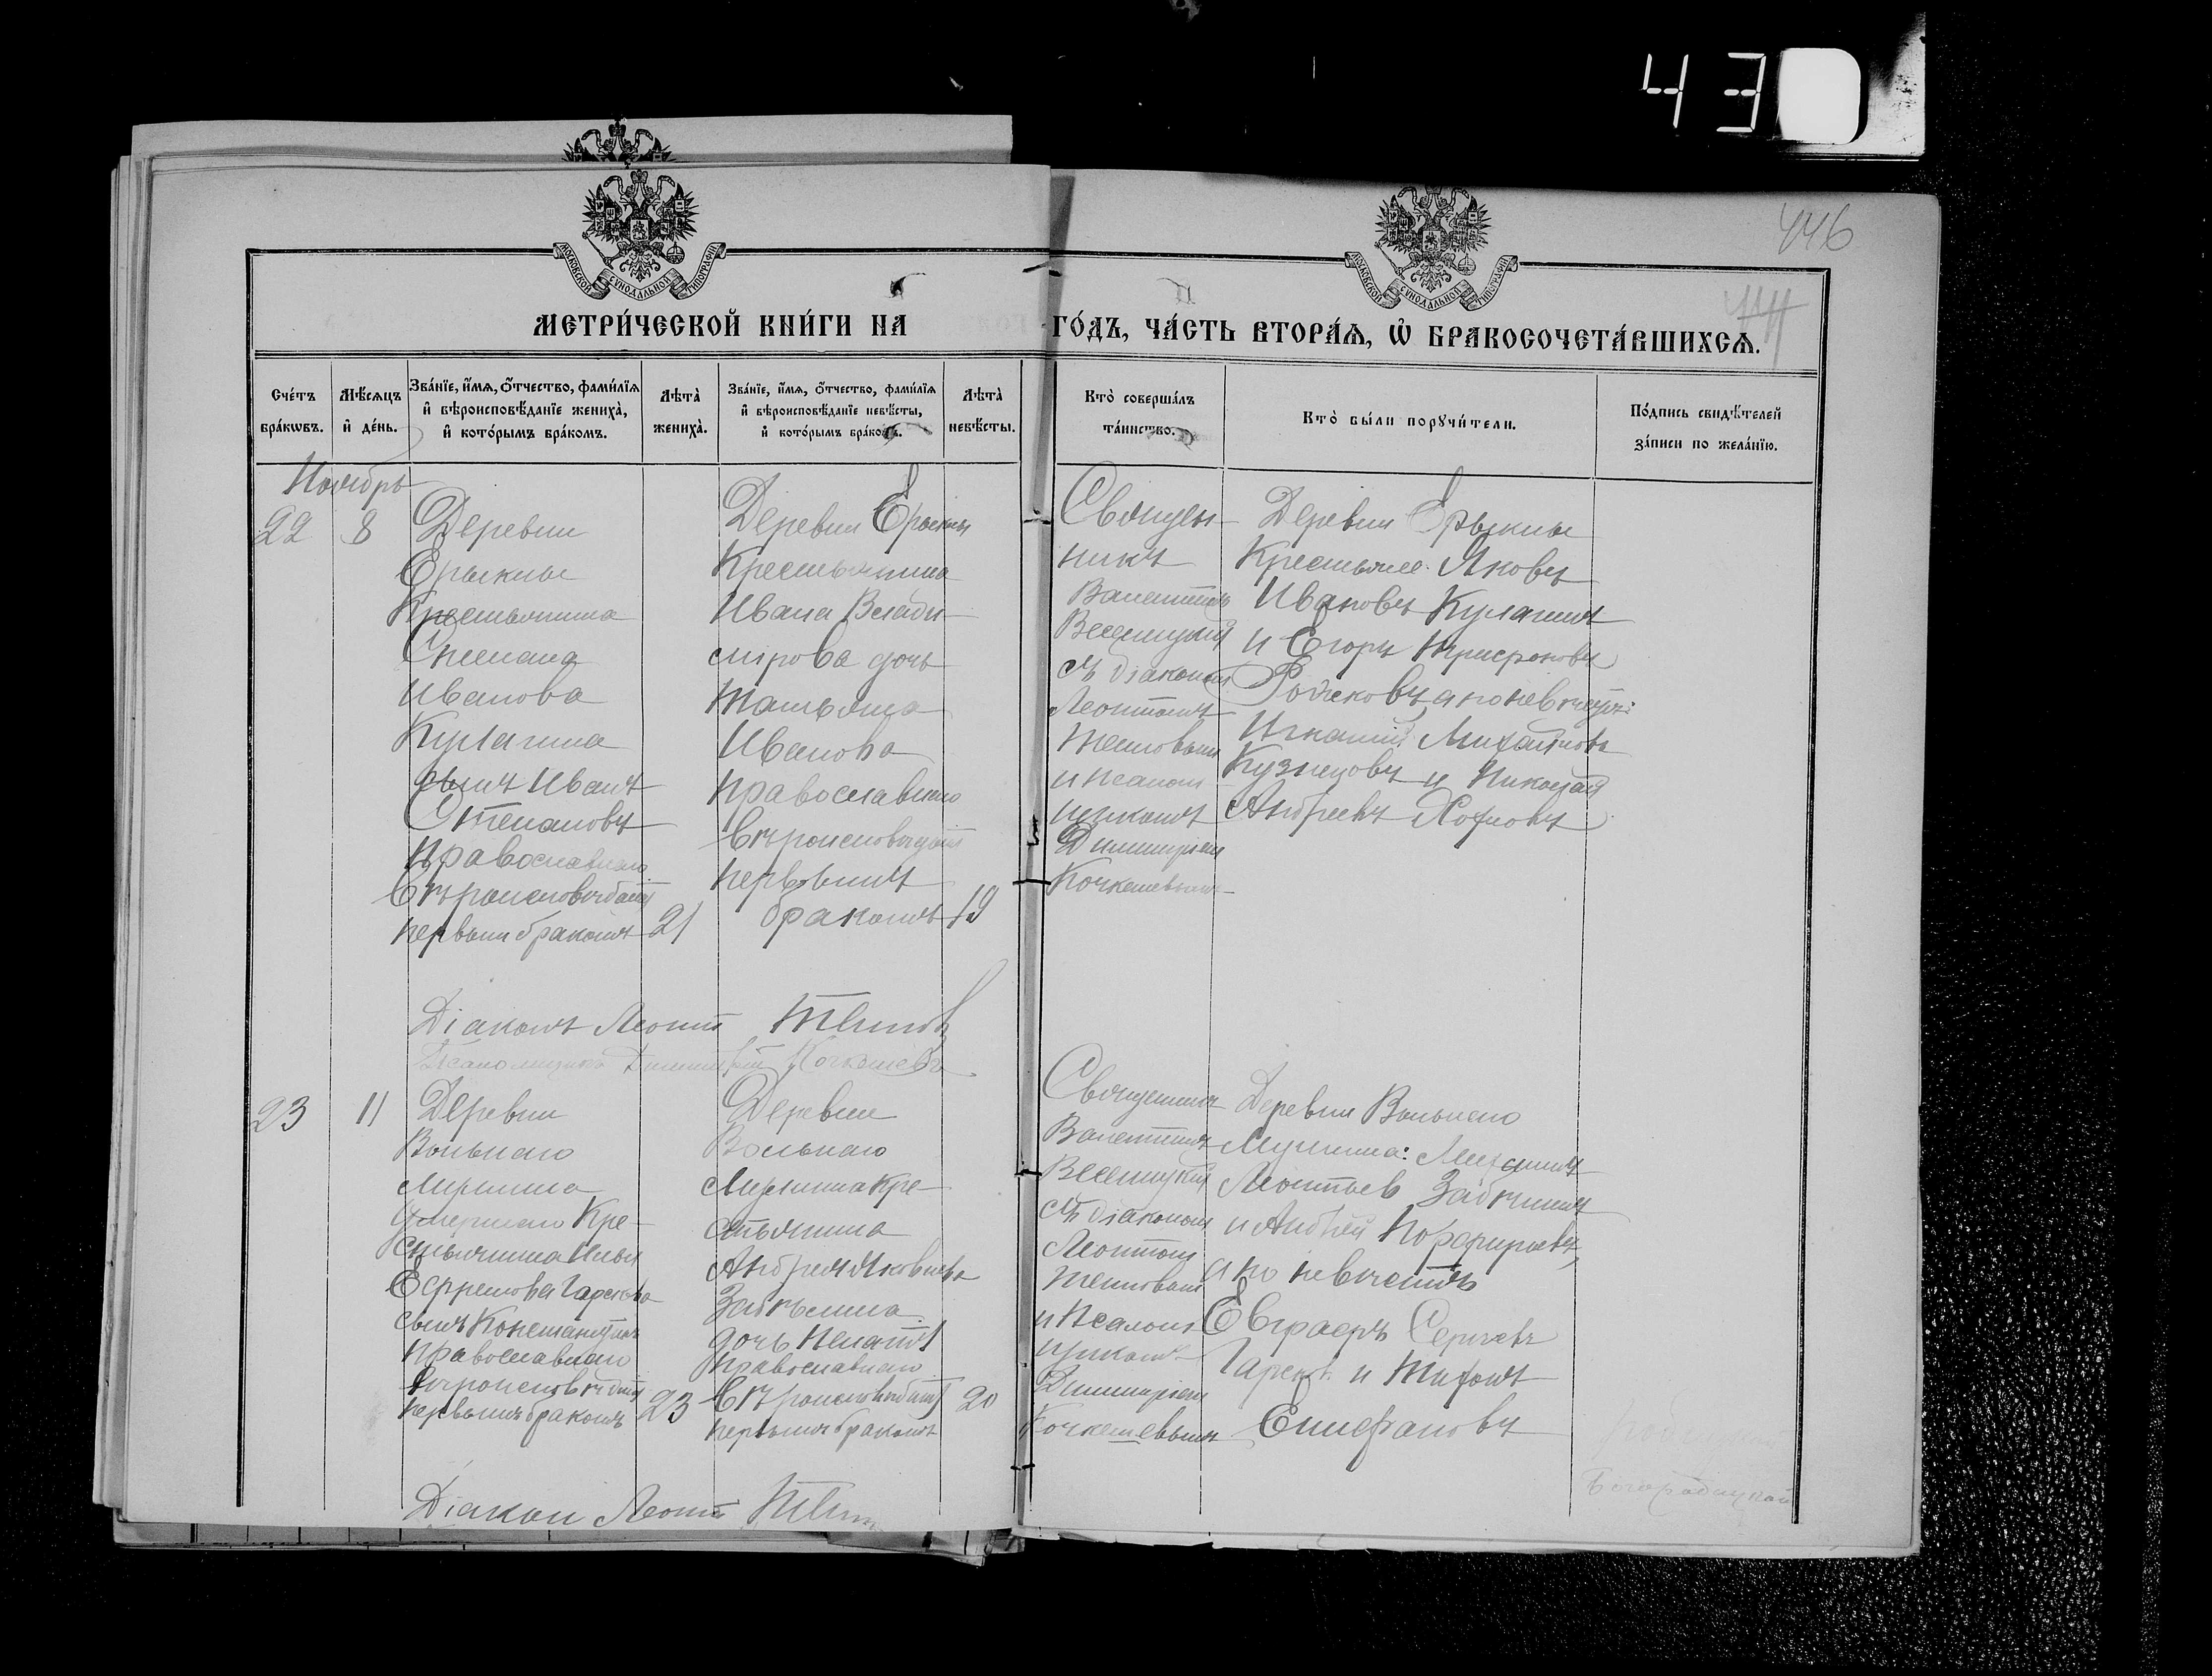 430
446
МОСКОВСКОЙ СѴНОДАЛЬНОЙ ТИПОГРАФІИ
МОСКОВСКОЙ СѴНОДАЛЬНОЙ ТИПОГРАФІИ
МЕТРИ́ЧЕСКОЙ КНИ́ГИ НА ГО́ДЪ, ЧА́СТЬ ВТОРА́Ѧ, Ѡ҆ БРАКОСОЧЕТА́ВШИХСѦ.
Сче́тъ бра́кѡвъ.
Мѣ́сѧцъ и҆ де́нь.
Зва́нїе, и҆́мѧ, ѻ҆́тчество, фами́лїѧ
и҆ вѣроисповѣ́данїе жениха̀,
и҆ кото́рымъ бра́комъ.
Лѣ̑та̀ жениха̀.
Зва́нїе, и҆́мѧ, ѻ҆́тчество, фами́лїѧ
и҆ вѣроисповѣ́данїе невѣ́сты,
и҆ кото́рымъ бра́комъ.
Лѣ̑та̀ невѣ́сты.
Кто̀ соверша́лъ
та́инство.
Кто̀ бы́ли порꙋчи́тели.
По́дпись свидѣ́телей
за́писи по жела́нїю.
Ноябрь
22
8
Деревни
Ерыкли
Крестьянина
Степана
Иванова
Кулагина
сынъ Иванъ
Степановъ
православнаго
вѣроисповѣданія
первымъ бракомъ
21
Деревни Ерыкли
Крестьянина
Ивана Влади-
мірова дочь
Татьяна
Иванова
православнаго
вѣроисповѣданія
первымъ
бракомъ
19
Священ-
никъ
Валентинъ
съ діакономъ
Леонтіемъ
и псалом-
щикомъ
Димитріемъ
Кочкашевымъ
Деревни Ерыкли
Крестьяне Яковъ
Ивановъ Кулагинъ
и Егоръ Трифоновъ
а по невѣстѣ:
Игнатій Михайловъ
Кузнецовъ и Николай
Андреевъ
Діаконъ Леонтій
Псаломщикъ Димитрій Кочкашевъ
23
11
Деревни
Вольнаго
умершаго Кре-
стьянина Ильи
Ефремова
сынъ Константинъ
православнаго
вѣроисповѣданія
первымъ бракомъ
23
Деревни
Вольнаго
Кре-
стьянина
Андрея Яковлева
дочь
православнаго
вѣроисповѣданія
первымъ бракомъ
20
Священникъ
Валентинъ
съ діакономъ
Леонтіемъ
и псалом-
щикомъ
Димитріемъ
Кочкашевымъ
Деревни Вольнаго
Леонтьев
и Андрей Порфирьевъ,
а по невѣстѣ
Евграфъ Сергѣевъ
и Тихонъ
Епифановъ
Діакон Леонтій